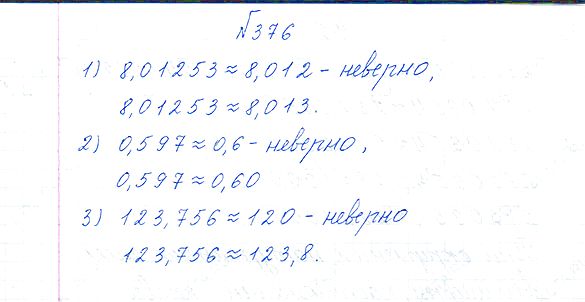 №376
1) 8,01253 ≈ 8,012 - неверно,
8,01253 ≈ 8,013.
2) 0,597 ≈ 0,6 - неверно,
0,597 ≈ 0,60
3) 123,756 ≈ 120 - неверно
123,756 ≈ 123,8.